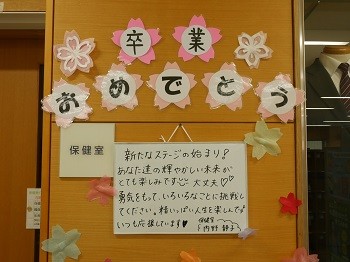 卒業
おめでとう
保健室
新たなステージの始まり!
あなた達の輝やかしい未来が
とても楽しみです 大丈夫♡♡
勇気をもって、いろいろなことに挑戦し
てください。精いっぱい人生を楽しんで♡
いつも応援しています♥
保健室
内野 静子